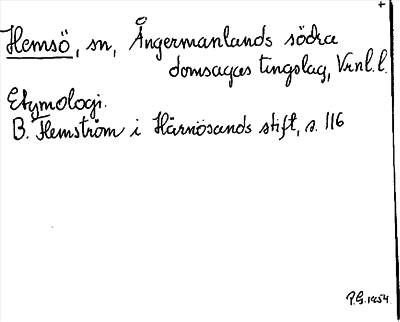 Hemsö, sn, Ångermanlands södra
domsagas tingslag, Vrnl. l.
Etymologi.
B. Flemström i Härnösands stift, s. 116
P.G. 1954